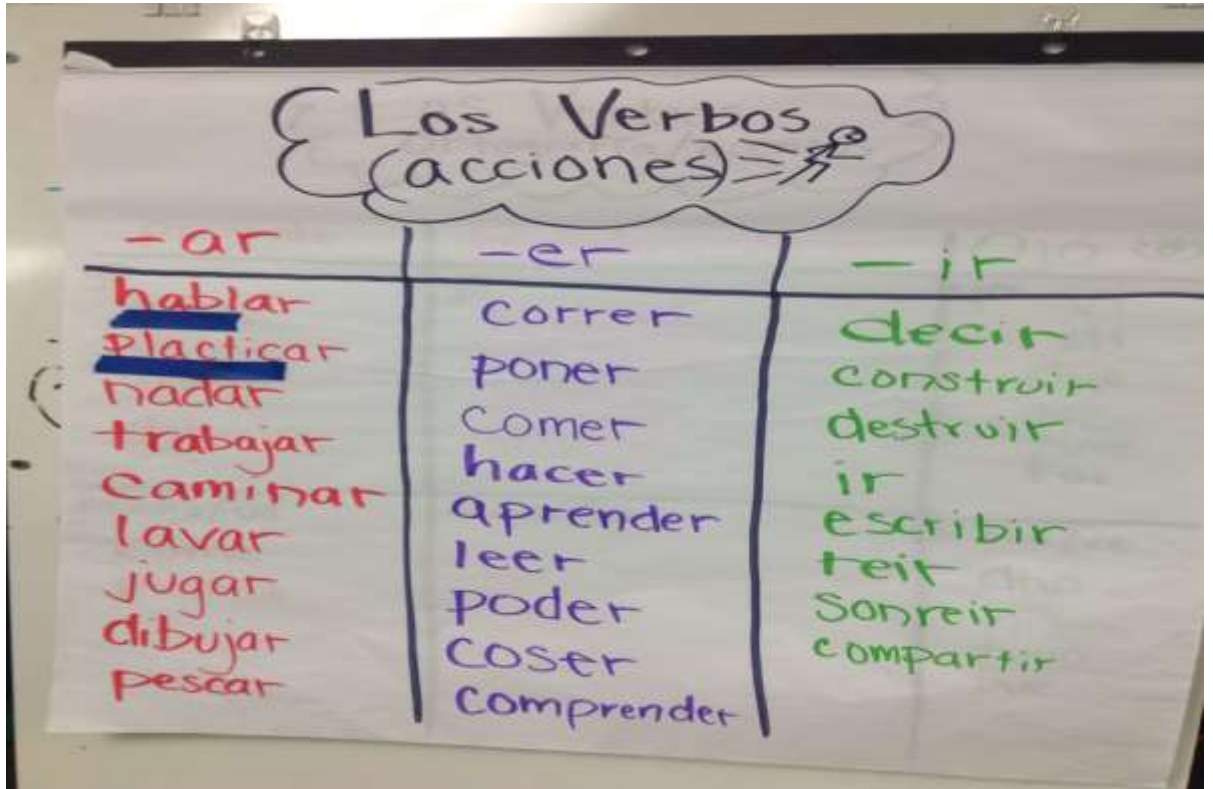 Los Verbos
(acciones)
-ar -er -ir
hablar correr decir
Placticar poner construir
nadar comer destruir
trabajar hacer ir
Caminar aprender escribir
lavar leer reir
jugar poder sonreir
dibujar coser compartir
pescar comprender